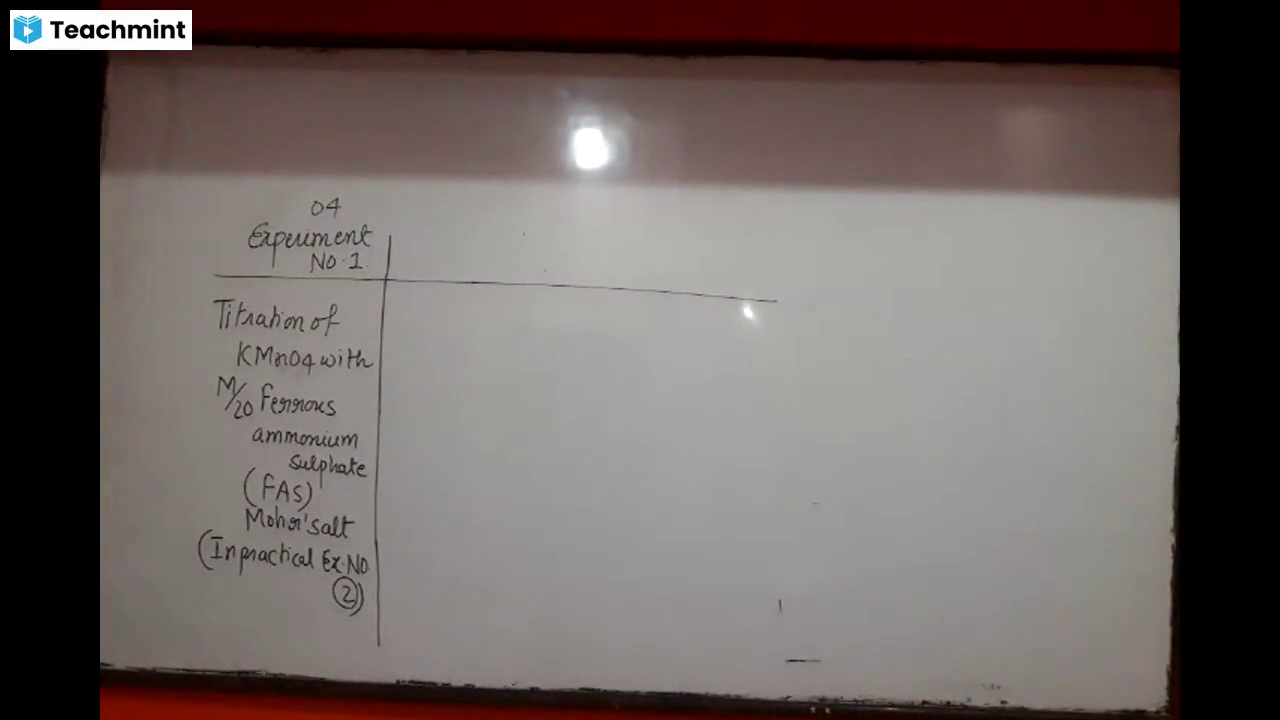 Teachmint
04
Experiment
No. 1
Titration of
KMnO4 with
M/20 Ferrous
ammonium
sulphate
(FAS)
Mohr'salt
(In practical Ex. No.
2)